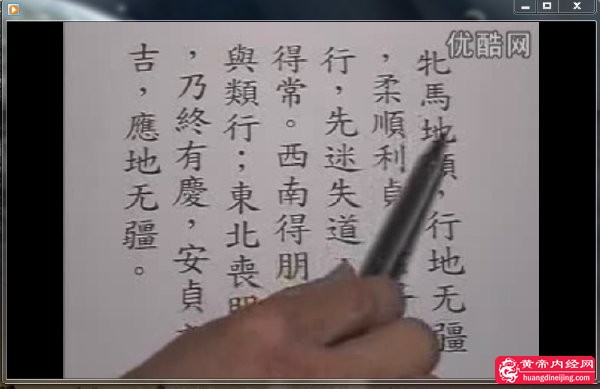 优酷网
牝馬地類，行地无疆
，柔順利貞
行，先迷失道，
得常。西南得朋
與類行；東北喪朋
，乃終有慶，安貞
吉，應地无疆。
黄帝内经网
huangdineijing.com